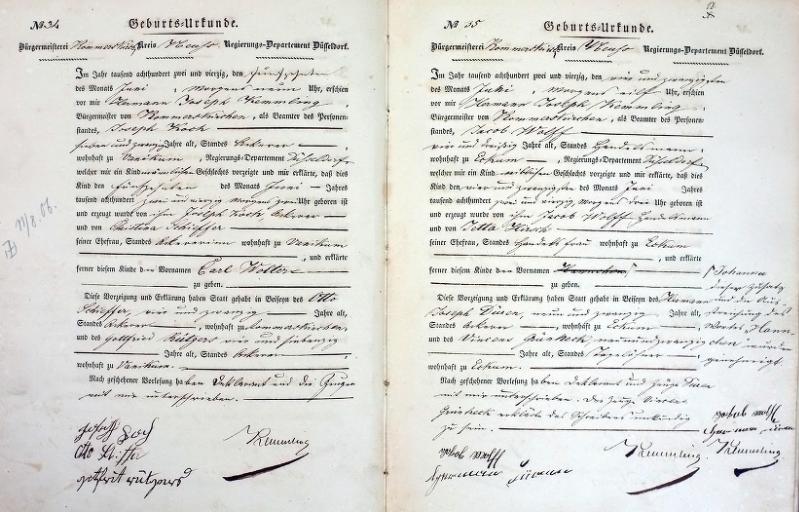 № 34
Geburts-Urkunde.
Bürgermeisterei Rommerskirchen Kreis Neuss Regierungs-Departement Düsseldorf.
Im Jahr tausend achthundert zwei und vierzig, den fünfzehnten
des Monats Juni, Morgens neun Uhr, erschien
vor mir Hermann Joseph Kemmling,
Bürgermeister von Rommerskirchen, als Beamter des Personen-
standes, Joseph Koch
sieben und zwanzig Jahre alt, Standes Ackerer
wohnhaft zu Vanikum, Regierungs-Departement Düsseldorf,
welcher mir ein Kind männlichen Geschlechts vorzeigte und mir erklärte, daß dies
Kind den fünfzehnten des Monats Juni Jahres
tausend achthundert zwei und vierzig Morgens Uhr geboren ist
und erzeugt wurde von ihm Joseph Koch Ackerer
und von Christina Schiffer
seiner Ehefrau, Standes Ackererin wohnhaft zu Vanikum
, und erklärte
ferner diesem Kinde den Vornamen Carl
zu geben.
Diese Vorzeigung und Erklärung haben Statt gehabt in Beiseyn des Otto
Schiffer, vier und zwanzig Jahre alt,
Standes Ackerer, wohnhaft zu Rommerskirchen,
und des Gottfried Rütgers vier und siebenzig
Jahre alt, Standes Ackerer
wohnhaft zu Vanikum.
Nach geschehener Vorlesung haben Deklarant und die Zeugen
mit mir unterschrieben.
Koch
Otto Schiffer
Kemmling
11/8. 06.
№ 35
Geburts-Urkunde.
Bürgermeisterei Rommerskirchen Kreis Neuss Regierungs-Departement Düsseldorf.
Im Jahr tausend achthundert zwei und vierzig, den vier und zwanzigsten
des Monats Juni, Morgens eilf Uhr, erschien
vor mir Hermann Joseph Kemmling,
Bürgermeister von Rommerskirchen, als Beamter des Personen-
standes, Jacob Wolff
vier und dreißig Jahre alt, Standes Handelsmann,
wohnhaft zu Eckum, Regierungs-Departement Düsseldorf,
welcher mir ein Kind weiblichen Geschlechts vorzeigte und mir erklärte, daß dies
Kind den vier und zwanzigsten des Monats Juni Jahres
tausend achthundert zwei und vierzig Morgens drei Uhr geboren ist
und erzeugt wurde von ihm Jacob Wolff Handelsmann
und von Hirsch
seiner Ehefrau, Standes Handelsfrau wohnhaft zu Eckum
, und erklärte
ferner diesem Kinde den Vornamen
zu geben.
Johanna
dieser Zusatz
und die Aus-
streichung des
Wortes Hann-
chen werden
genehmigt
Diese Vorzeigung und Erklärung haben Statt gehabt in Beiseyn des Hermann
Joseph, neun und zwanzig Jahre alt,
Standes Ackerer, wohnhaft zu Eckum,
und des neun und zwanzig
Jahre alt, Standes Tagelöhner
wohnhaft zu Eckum.
Nach geschehener Vorlesung haben Deklarant und Zeuge
mit mir unterschrieben. Der Zeuge
erklärte des Schreibens unkundig
zu sein.
Jacob Wolff
Hermann
Kemmling
Jacob Wolff
Hermann
Kemmling